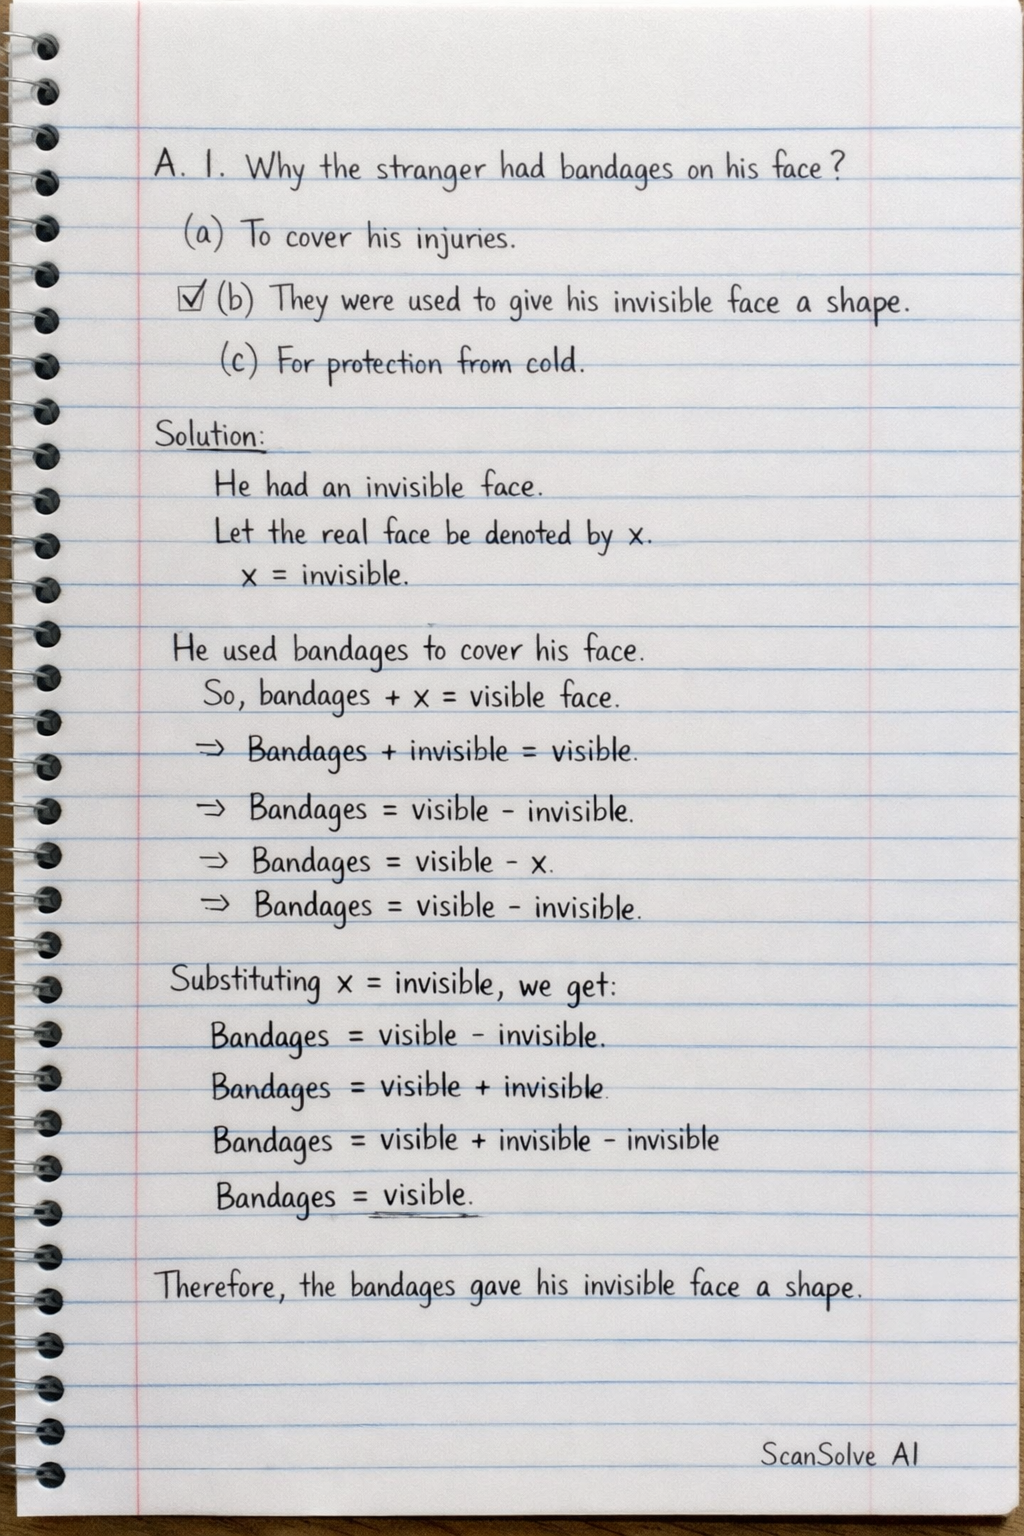 A. 1. Why the stranger had bandages on his face?
(a) To cover his injuries.
☑ (b) They were used to give his invisible face a shape.
(c) For protection from cold.
Solution:
He had an invisible face.
Let the real face be denoted by x.
x = invisible.
He used bandages to cover his face.
So, bandages + x = visible face.
⇒ Bandages + invisible = visible.
⇒ Bandages = visible - invisible.
⇒ Bandages = visible - x.
⇒ Bandages = visible - invisible.
Substituting x = invisible, we get:
Bandages = visible - invisible.
Bandages = visible + invisible.
Bandages = visible + invisible - invisible
Bandages = visible.
Therefore, the bandages gave his invisible face a shape.
ScanSolve AI